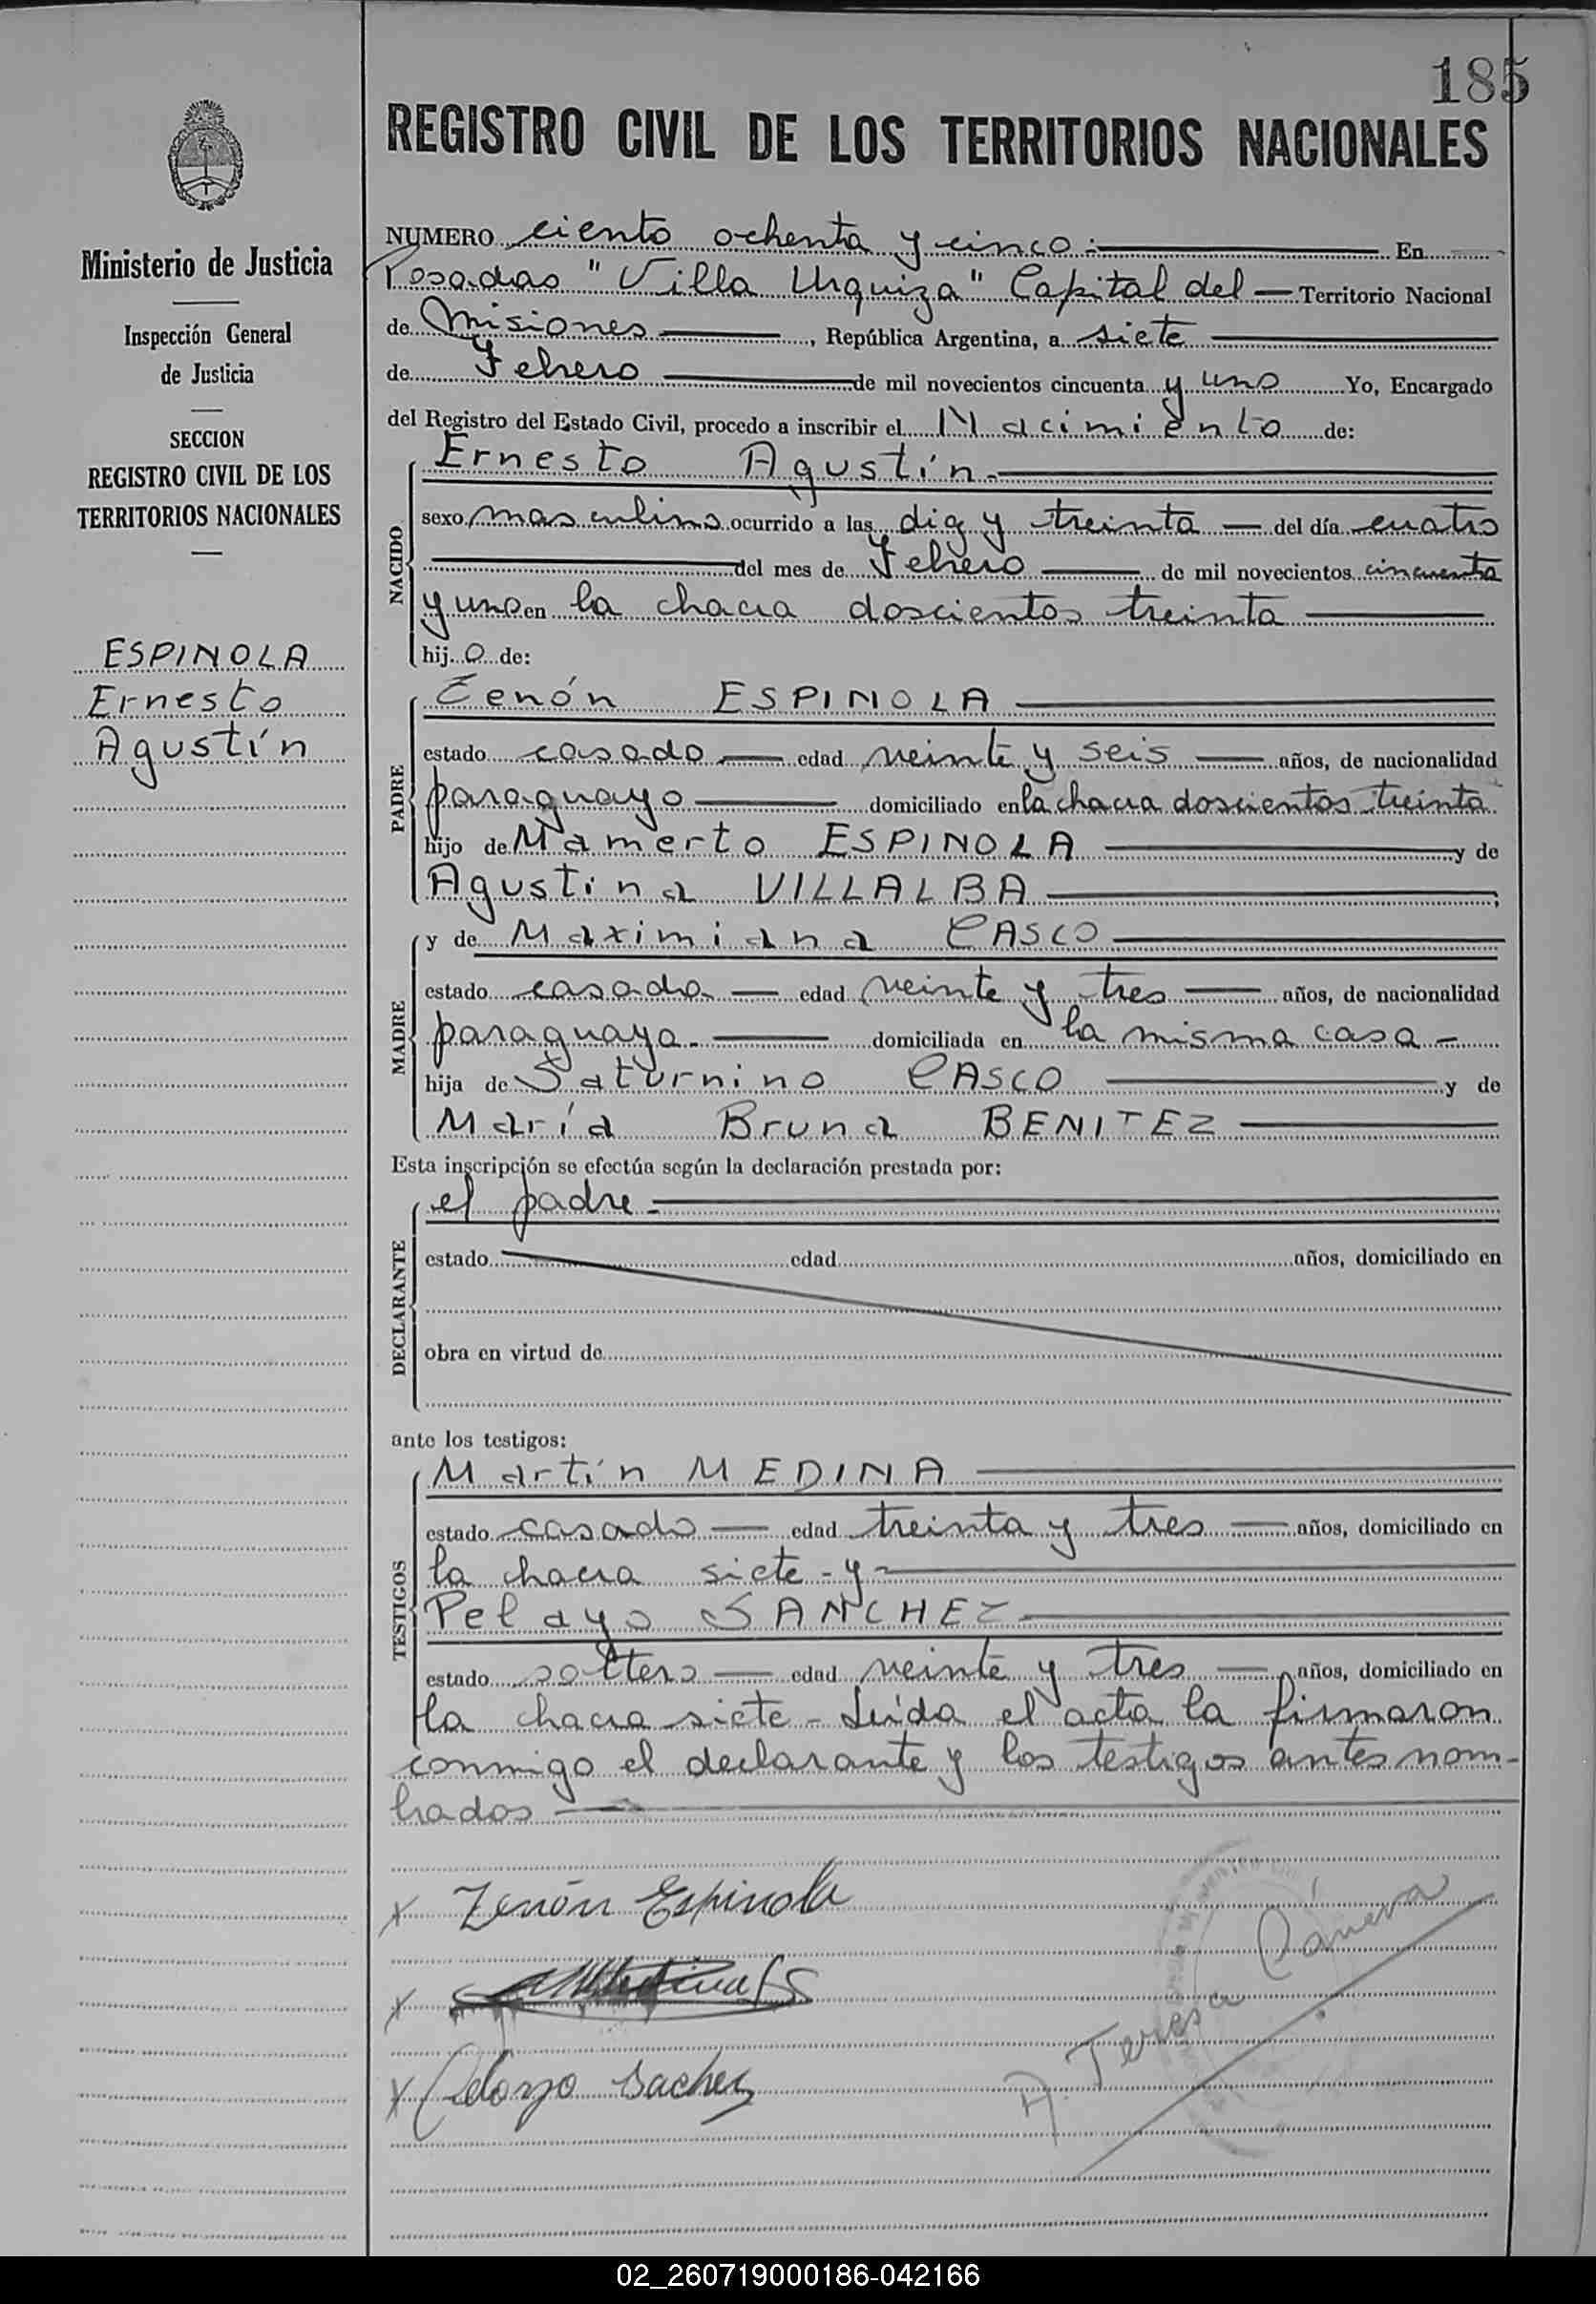 185
REGISTRO CIVIL DE LOS TERRITORIOS NACIONALES
Ministerio de Justicia
Inspección General
de Justicia
SECCION
REGISTRO CIVIL DE LOS
TERRITORIOS NACIONALES
ESPINOLA
Ernesto
Agustín
NUMERO ciento ochenta y cinco.- En
Posadas "Villa Urquiza" Capital del Territorio Nacional
de Misiones, República Argentina, a siete
de Febrero de mil novecientos cincuenta y uno Yo, Encargado
del Registro del Estado Civil, procedo a inscribir el Nacimiento de:
NACIDO
Ernesto Agustín.-
sexo masculino ocurrido a las diez y treinta del día cuatro
del mes de Febrero de mil novecientos cincuenta
y uno en la chacra doscientos treinta
hijo de:
PADRE
Zenón ESPINOLA
estado casado edad veinte y seis años, de nacionalidad
paraguayo domiciliado en la chacra doscientos treinta
hijo de Mamerto ESPINOLA y de
Agustina VILLALBA
MADRE
y de Maximiana CASCO
estado casada edad veinte y tres años, de nacionalidad
paraguaya.- domiciliada en la misma casa -
hija de Saturnino CASCO y de
María Bruna BENITEZ
Esta inscripción se efectúa según la declaración prestada por:
DECLARANTE
el padre.-
estado edad años, domiciliado en
obra en virtud de
ante los testigos:
TESTIGOS
Martín MEDINA
estado casado edad treinta y tres años, domiciliado en
la chacra siete - y -
Pelayo SANCHEZ
estado soltero edad veinte y tres años, domiciliado en
la chacra siete - Leída el acta la firmaron
conmigo el declarante y los testigos antes nom-
brados
x Zenón Espinola
x
x Pelayo Sachez
A. Teresa
02_260719000186-042166